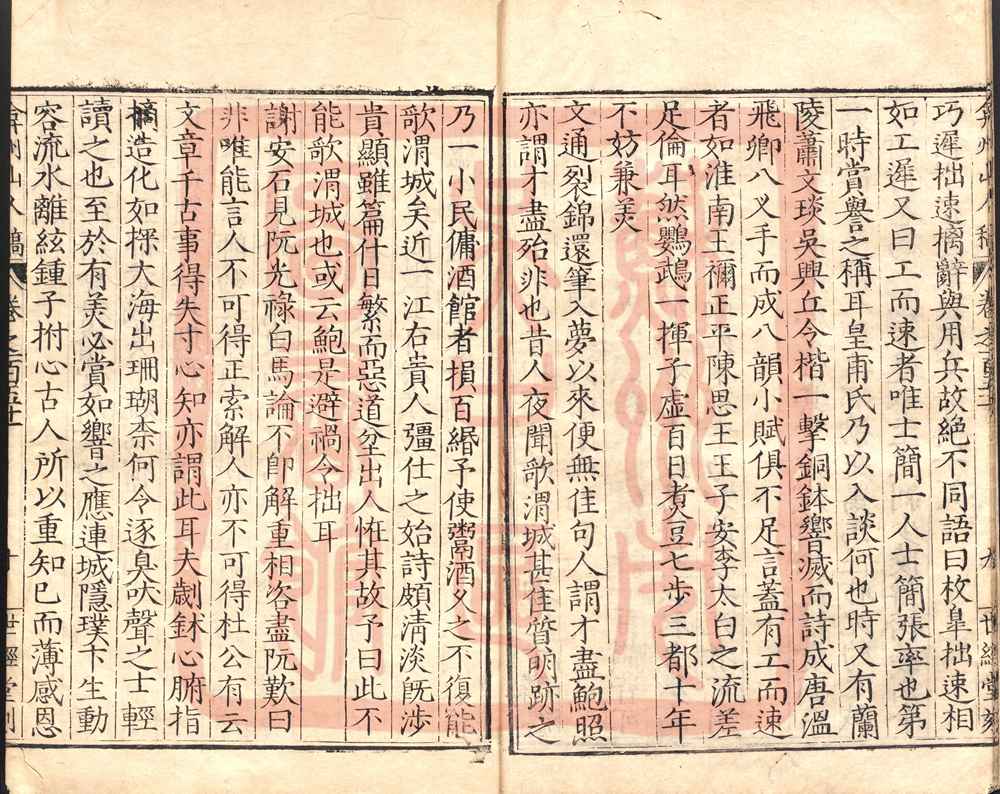 弇州山人稿 卷之一百五十
世經堂刻
巧遲拙速摛辭與用兵故絶不同語曰枚皐拙速相
如工遲又曰工而速者唯士簡一人士簡張率也第
一時賞譽之稱耳皇甫氏乃以入談何也時又有蘭
陵蕭文琰吳興丘令楷一擊銅鉢響滅而詩成唐溫
飛卿八叉手而成八韻小賦俱不足言蓋有工而速
者如淮南王禰正平陳思王王子安李太白之流差
足倫耳然鸚鵡一揮子虛百日煮豆七步三都十年
不妨兼美
文通裂錦還筆入夢以來便無佳句人謂才盡鮑照
亦謂才盡殆非也昔人夜聞歌渭城甚佳質明跡之
乃一小民傭酒館者損百緡予使鬻酒久之不復能
歌渭城矣近一江右貴人彊仕之始詩頗清淡旣涉
貴顯雖篇什日繁而惡道坌出人恠其故予曰此不
能歌渭城也或云鮑是避禍令拙耳
謝安石見阮光祿白馬論不卽解重相咨盡阮歎曰
非唯能言人不可得正索解人亦不可得杜公有云
文章千古事得失寸心知亦謂此耳夫劌鉥心腑指
摘造化如探大海出珊瑚柰何令逐臭吠聲之士輕
讀之也至於有美必賞如響之應連城隱璞卞生動
容流水離絃鍾子拊心古人所以重知巳而薄感恩
弇州山人稿 卷之一百五十
世經堂刻